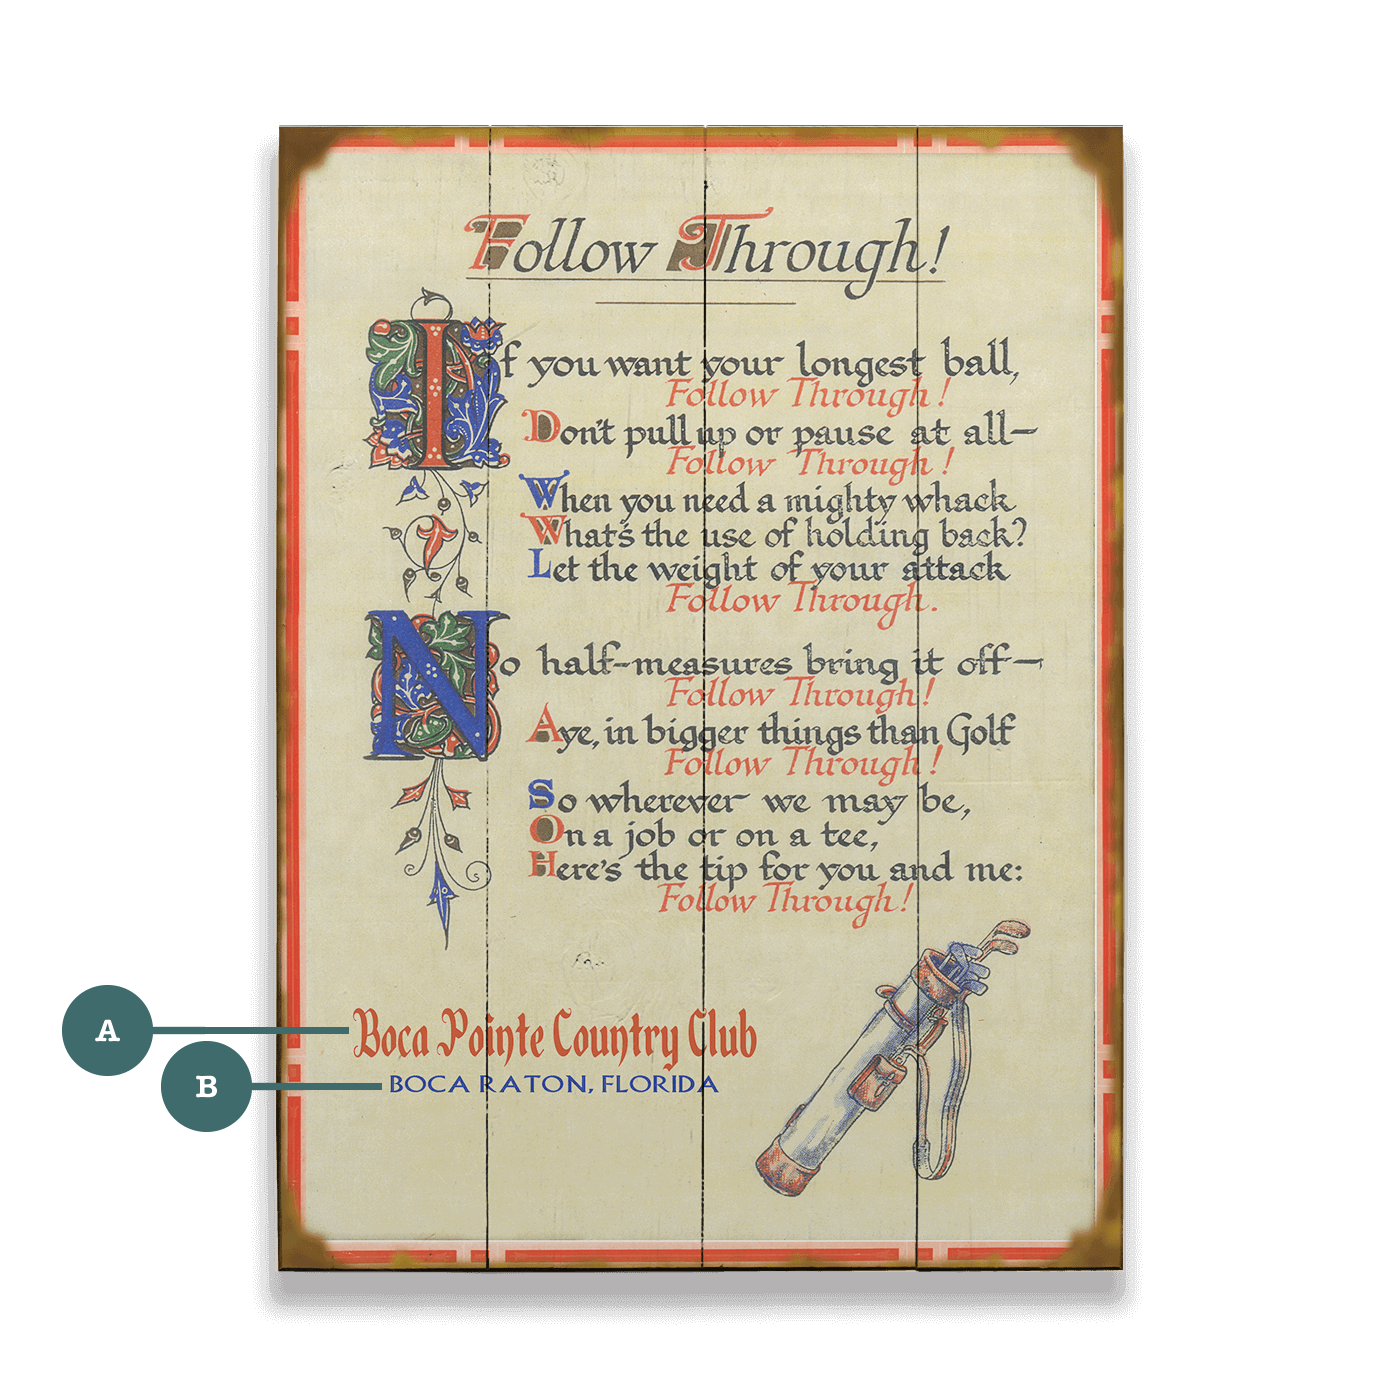 Follow Through!
If you want your longest ball,
Follow Through!
Don't pull up or pause at all—
Follow Through!
When you need a mighty whack
What's the use of holding back?
Let the weight of your attack
Follow Through.
No half-measures bring it off—
Follow Through!
Aye, in bigger things than Golf
Follow Through!
So wherever we may be,
On a job or on a tee,
Here's the tip for you and me:
Follow Through!
A
Boca Pointe Country Club
B
BOCA RATON, FLORIDA